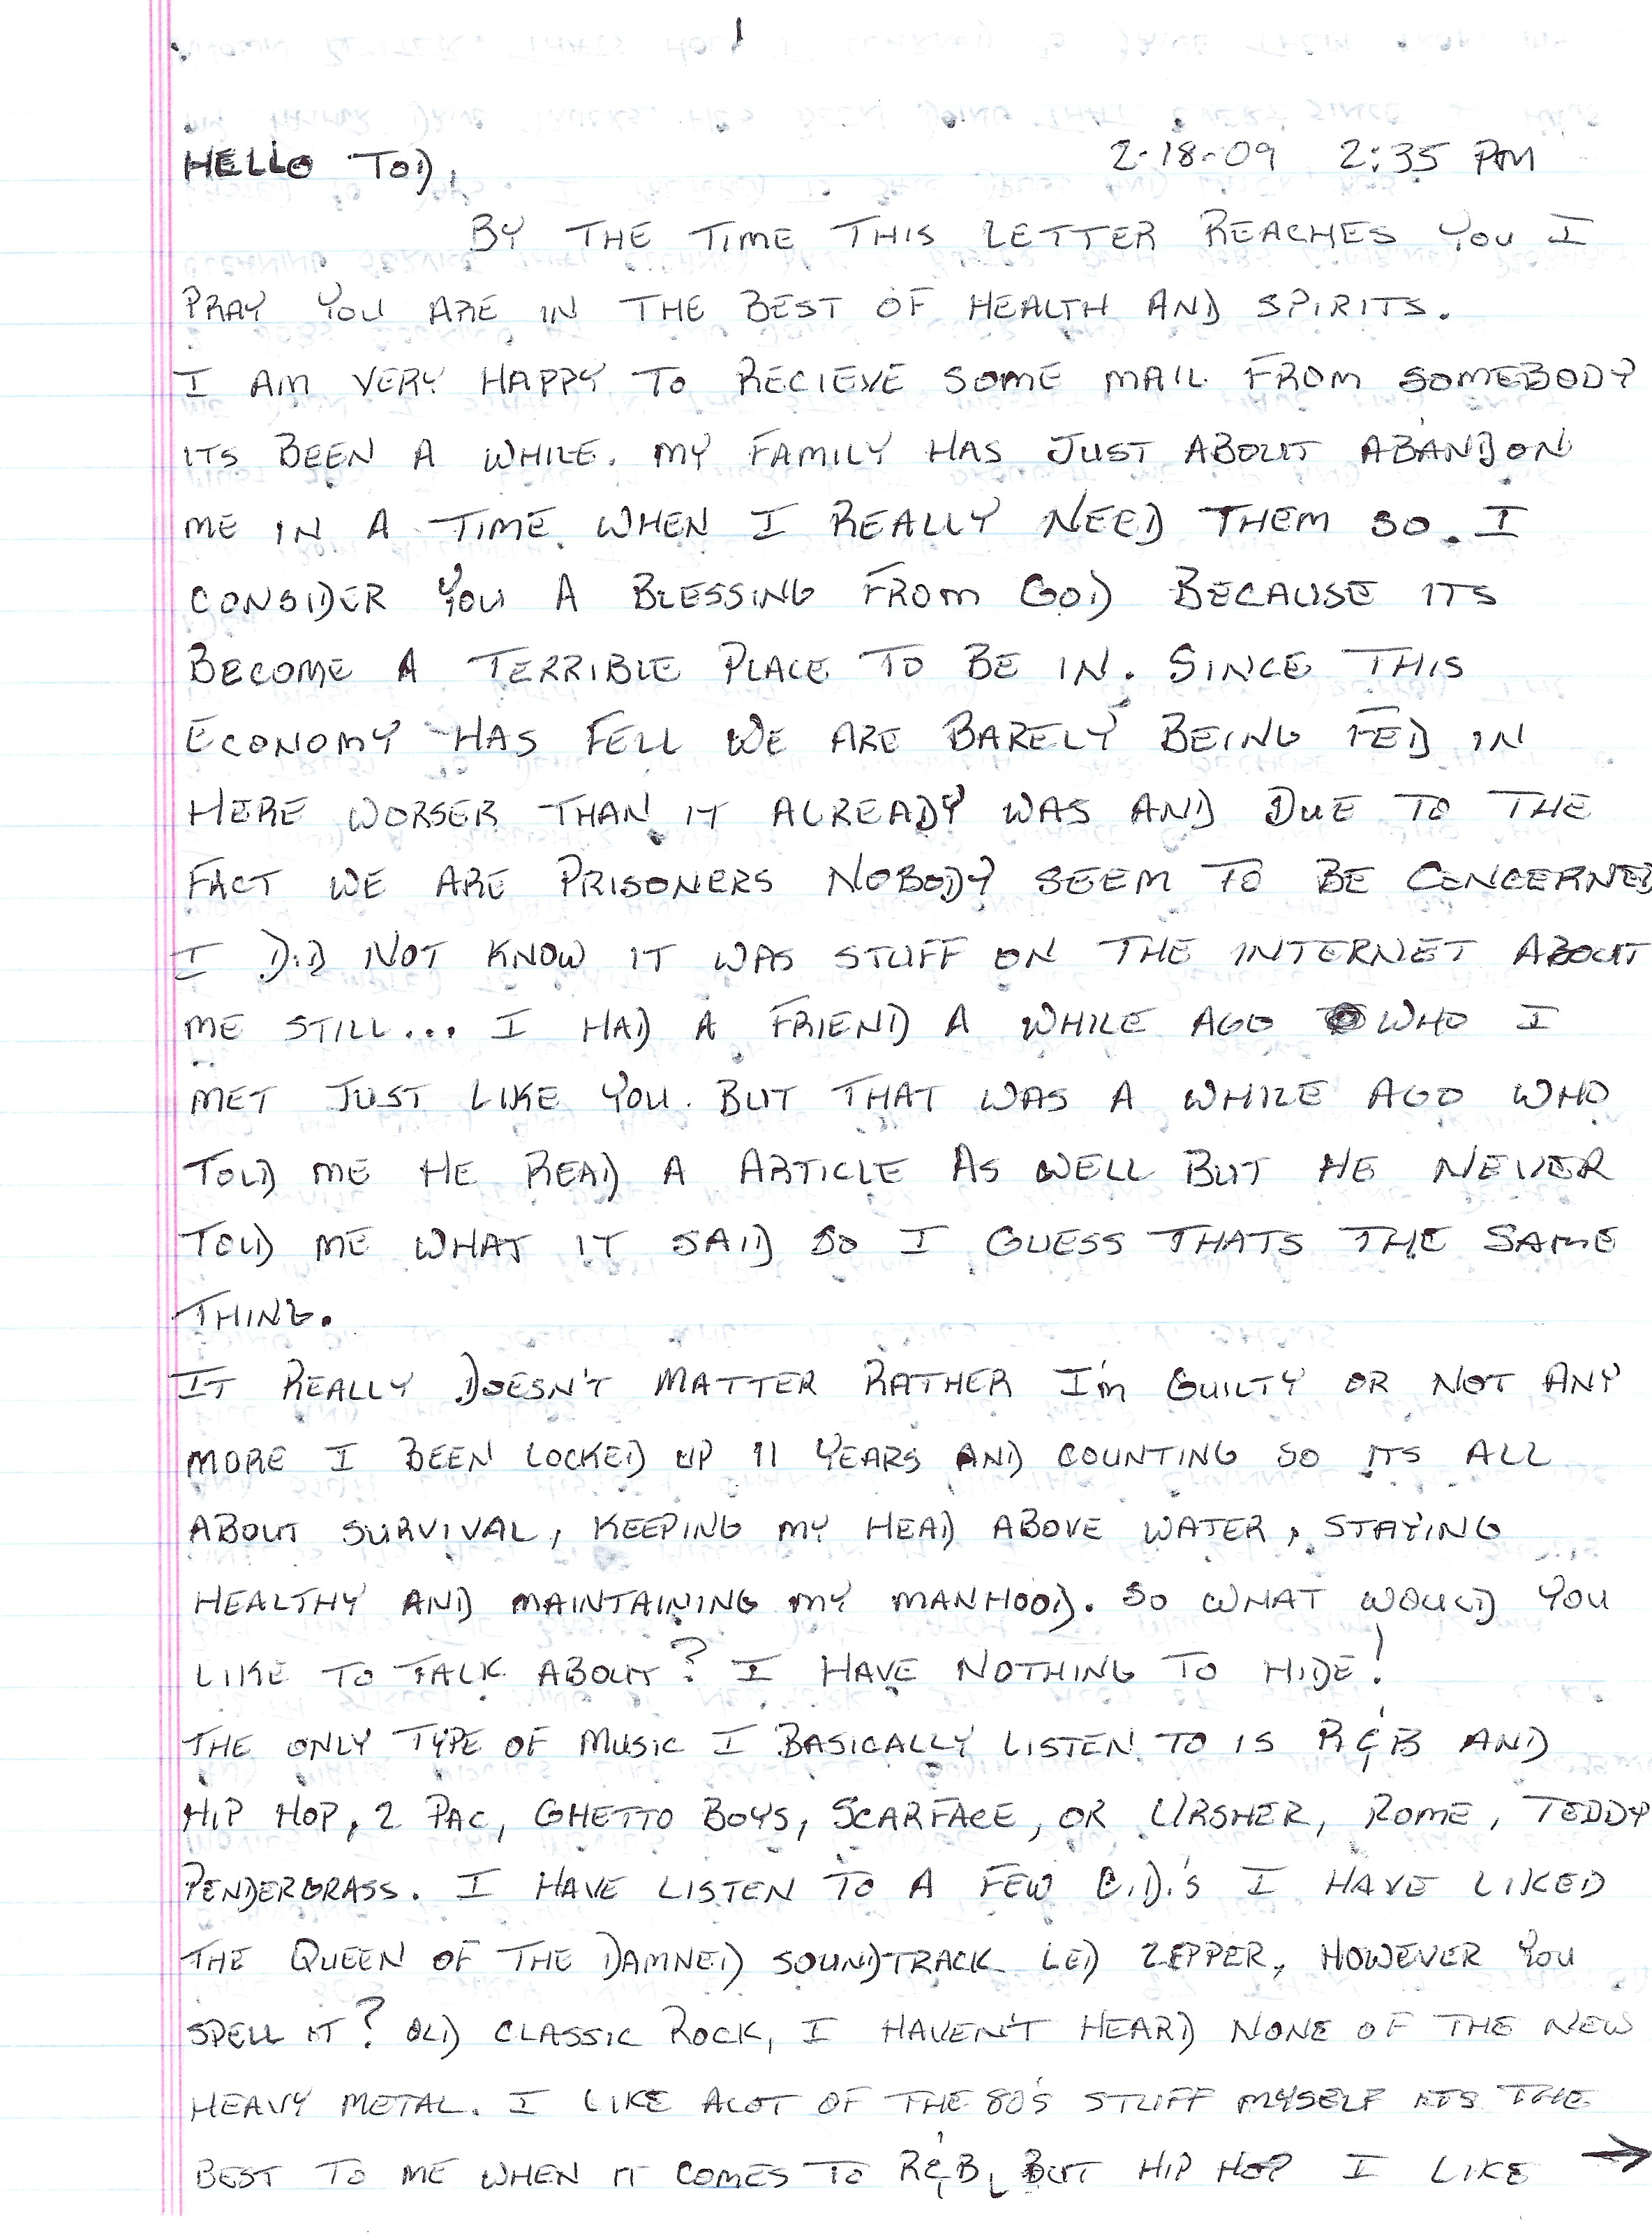 1
HELLO TOD, 2-18-09 2:35 PM
BY THE TIME THIS LETTER REACHES YOU I
PRAY YOU ARE IN THE BEST OF HEALTH AND SPIRITS.
I AM VERY HAPPY TO RECIEVE SOME MAIL FROM SOMEBODY
ITS BEEN A WHILE. MY FAMILY HAS JUST ABOUT ABANDON
ME IN A TIME WHEN I REALLY NEED THEM SO. I
CONSIDER YOU A BLESSING FROM GOD BECAUSE ITS
BECOME A TERRIBLE PLACE TO BE IN. SINCE THIS
ECONOMY HAS FELL WE ARE BARELY BEING FED IN
HERE WORSER THAN IT ALREADY WAS AND DUE TO THE
FACT WE ARE PRISONERS NOBODY SEEM TO BE CONCERNED
I DID NOT KNOW IT WAS STUFF ON THE INTERNET ABOUT
ME STILL... I HAD A FRIEND A WHILE AGO WHO I
MET JUST LIKE YOU. BUT THAT WAS A WHILE AGO WHO
TOLD ME HE READ A ARTICLE AS WELL BUT HE NEVER
TOLD ME WHAT IT SAID SO I GUESS THATS THE SAME
THING.
IT REALLY DOESN'T MATTER RATHER I'M GUILTY OR NOT ANY
MORE I BEEN LOCKED UP 11 YEARS AND COUNTING SO ITS ALL
ABOUT SURVIVAL, KEEPING MY HEAD ABOVE WATER, STAYING
HEALTHY AND MAINTAINING MY MANHOOD. SO WHAT WOULD YOU
LIKE TO TALK ABOUT? I HAVE NOTHING TO HIDE!
THE ONLY TYPE OF MUSIC I BASICALLY LISTEN TO IS R&B AND
HIP HOP, 2 PAC, GHETTO BOYS, SCARFACE, OR URSHER, ROME, TEDDY
PENDERGRASS. I HAVE LISTEN TO A FEW C.D.'S I HAVE LIKED
THE QUEEN OF THE DAMNED SOUNDTRACK LED ZEPPER, HOWEVER YOU
SPELL IT? OLD CLASSIC ROCK, I HAVEN'T HEARD NONE OF THE NEW
HEAVY METAL. I LIKE ALOT OF THE 80'S STUFF MYSELF ITS THE
BEST TO ME WHEN IT COMES TO R&B, BUT HIP HOP I LIKE →